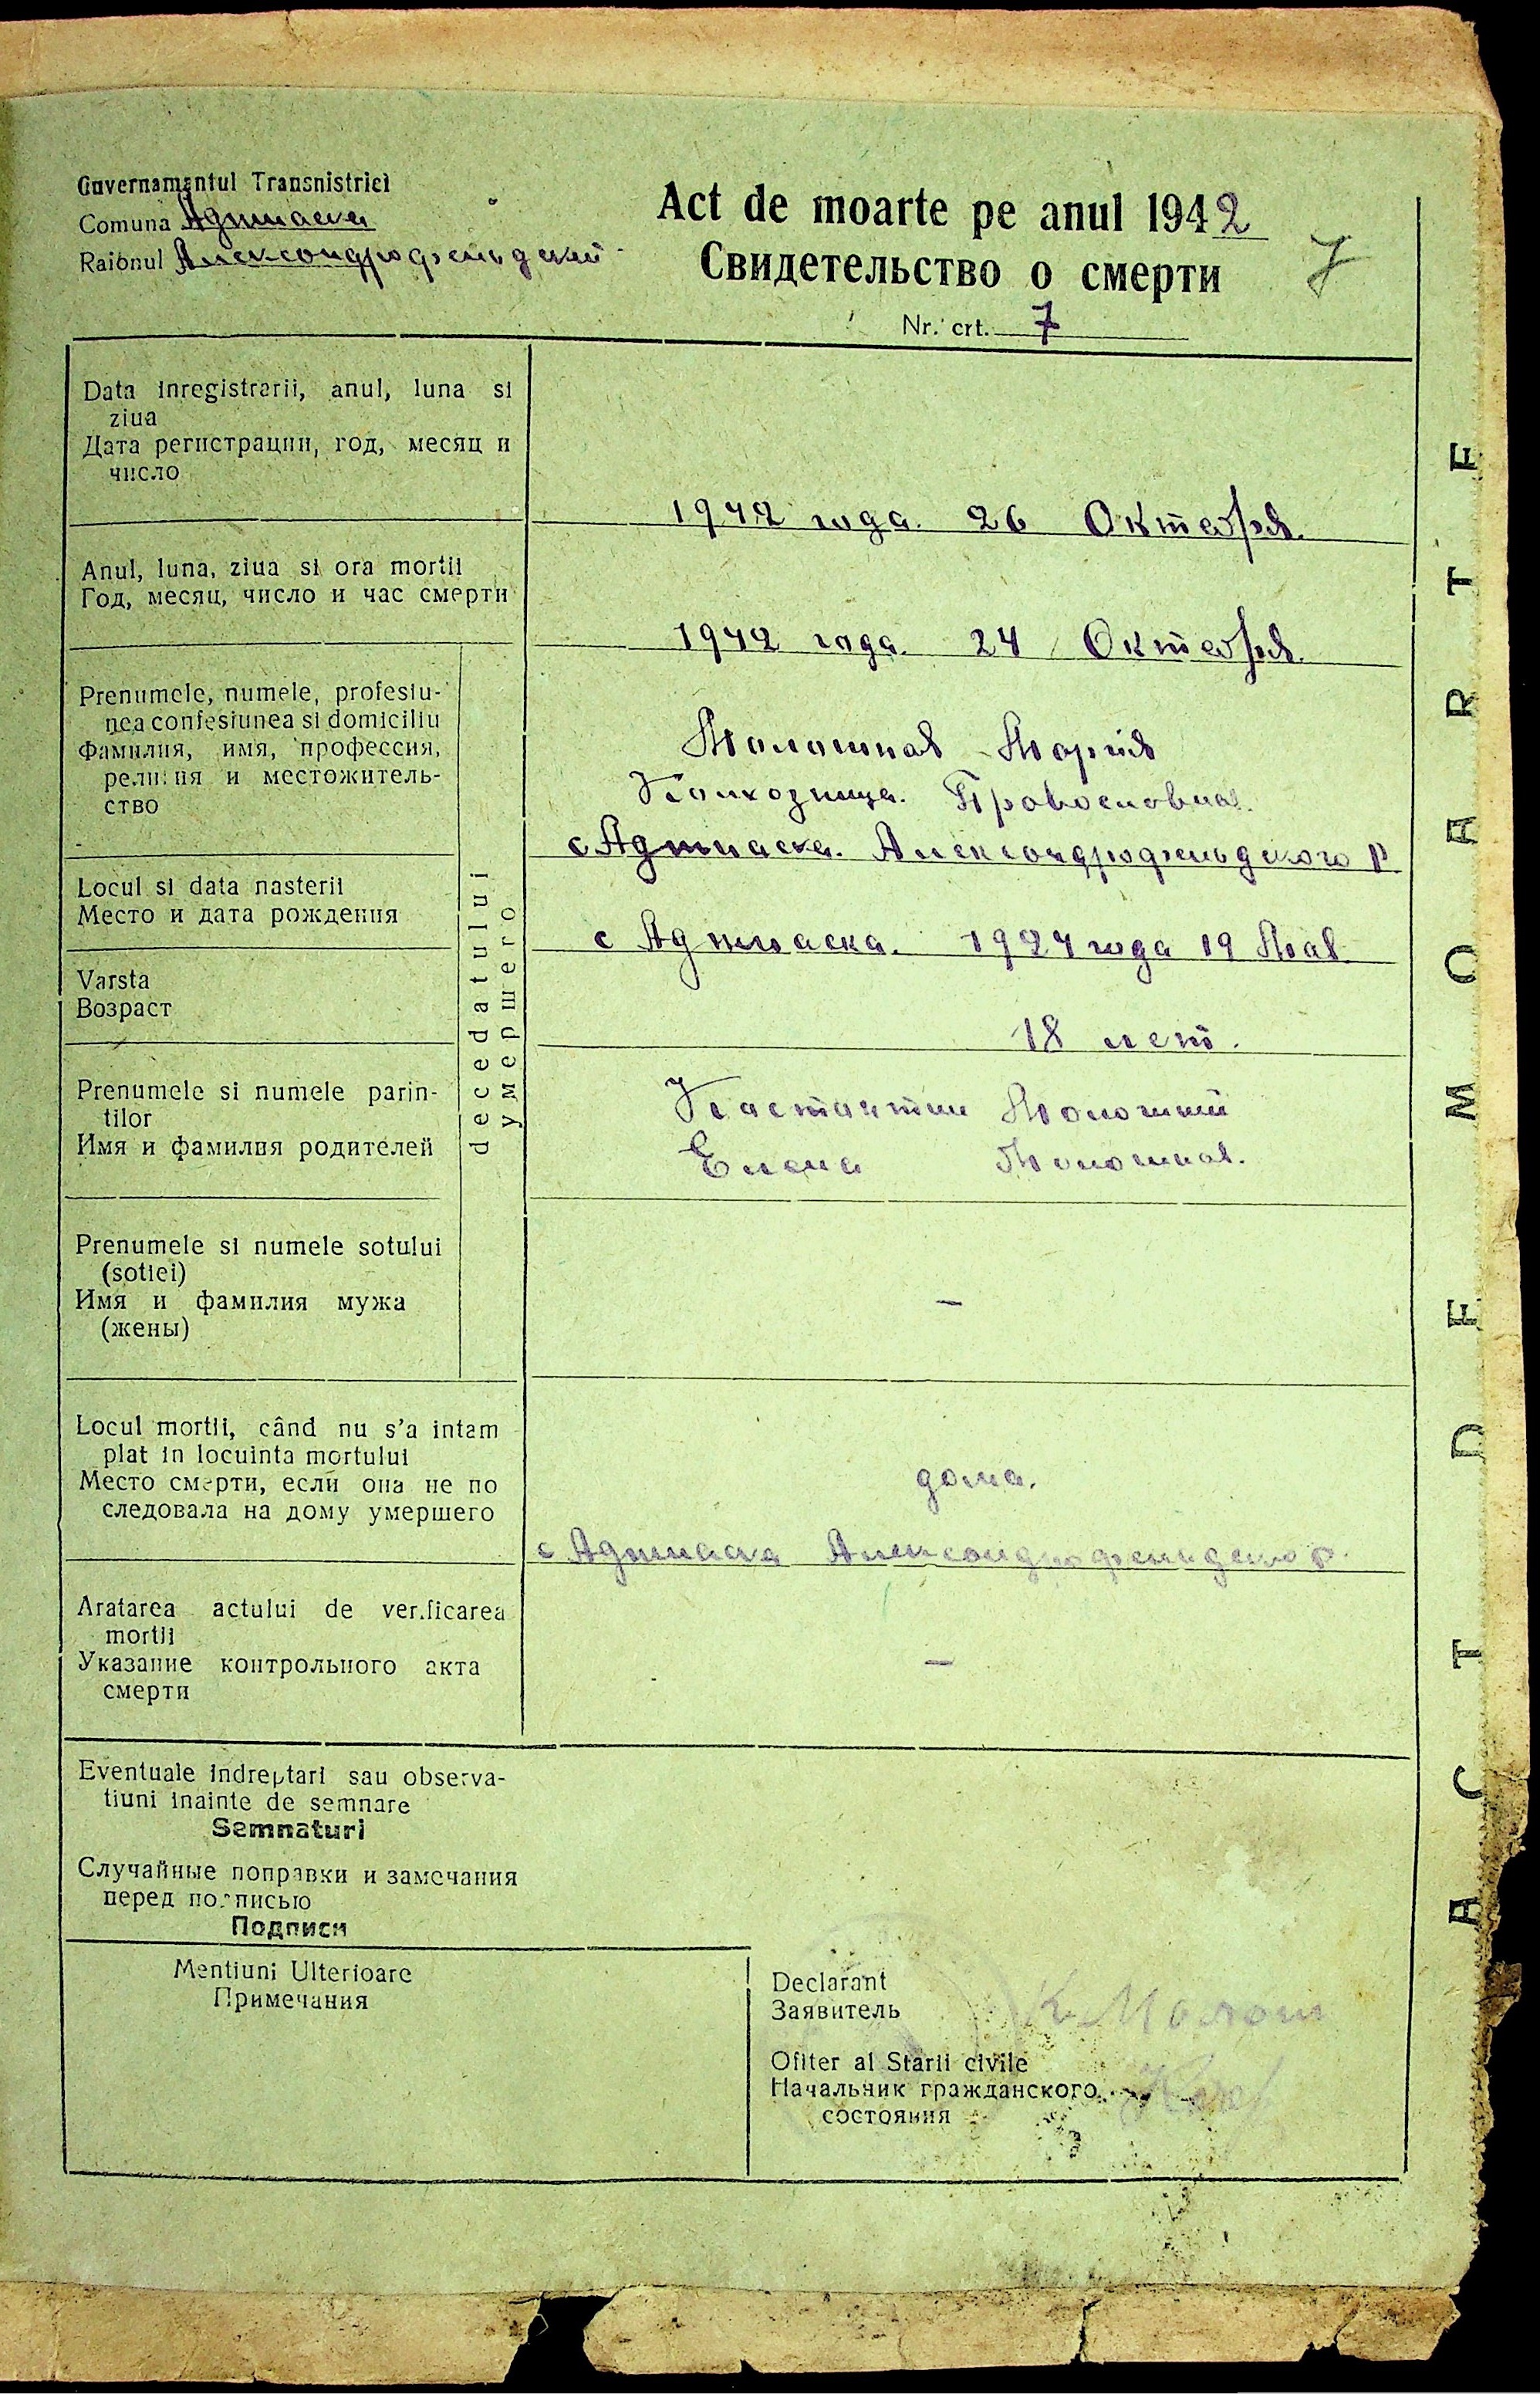 Guvernamantul Transnistriei
Comuna Аджиаска
Raionul Александрофельдский
Act de moarte pe anul 1942
Свидетельство о смерти
7
Nr. crt. 7
Data inregistrarii, anul, luna si
ziua
Дата регистрации, год, месяц и
число
1942 года. 26 Октебря.
Anul, luna, ziua si ora mortii
Год, месяц, число и час смерти
1942 года. 24 Октебря.
Prenumele, numele, profesiu-
nea confesiunea si domiciliu
Фамилия, имя, профессия,
религия и местожитель-
ство
Молошная Мория
Колхозница. Провословная.
с Аджиаска. Александрофельдского р
decedatului
умершего
Locul si data nasterii
Место и дата рождения
с Аджиаска. 1924 года 19 Мая.
Varsta
Возраст
18 лет.
Prenumele si numele parin-
tilor
Имя и фамилия родителей
Костантин Молошний
Елена Молошная.
Prenumele si numele sotului
(sotiei)
Имя и фамилия мужа
(жены)
—
Locul mortii, când nu s'a intam
plat in locuinta mortului
Место смерти, если она не по
следовала на дому умершего
дома.
с Аджиаска Александрофельдско р.
Aratarea actului de verificarea
mortii
Указание контрольного акта
смерти
—
Eventuale indreptari sau observa-
tiuni inainte de semnare
Semnaturi
Случайные поправки и замечания
перед подписью
Подписи
Mentiuni Ulterioare
Примечания
Declarant
Заявитель
К. Молош
Ofiter al Starii civile
Начальник гражданского
состояния
ACT DE MOARTE